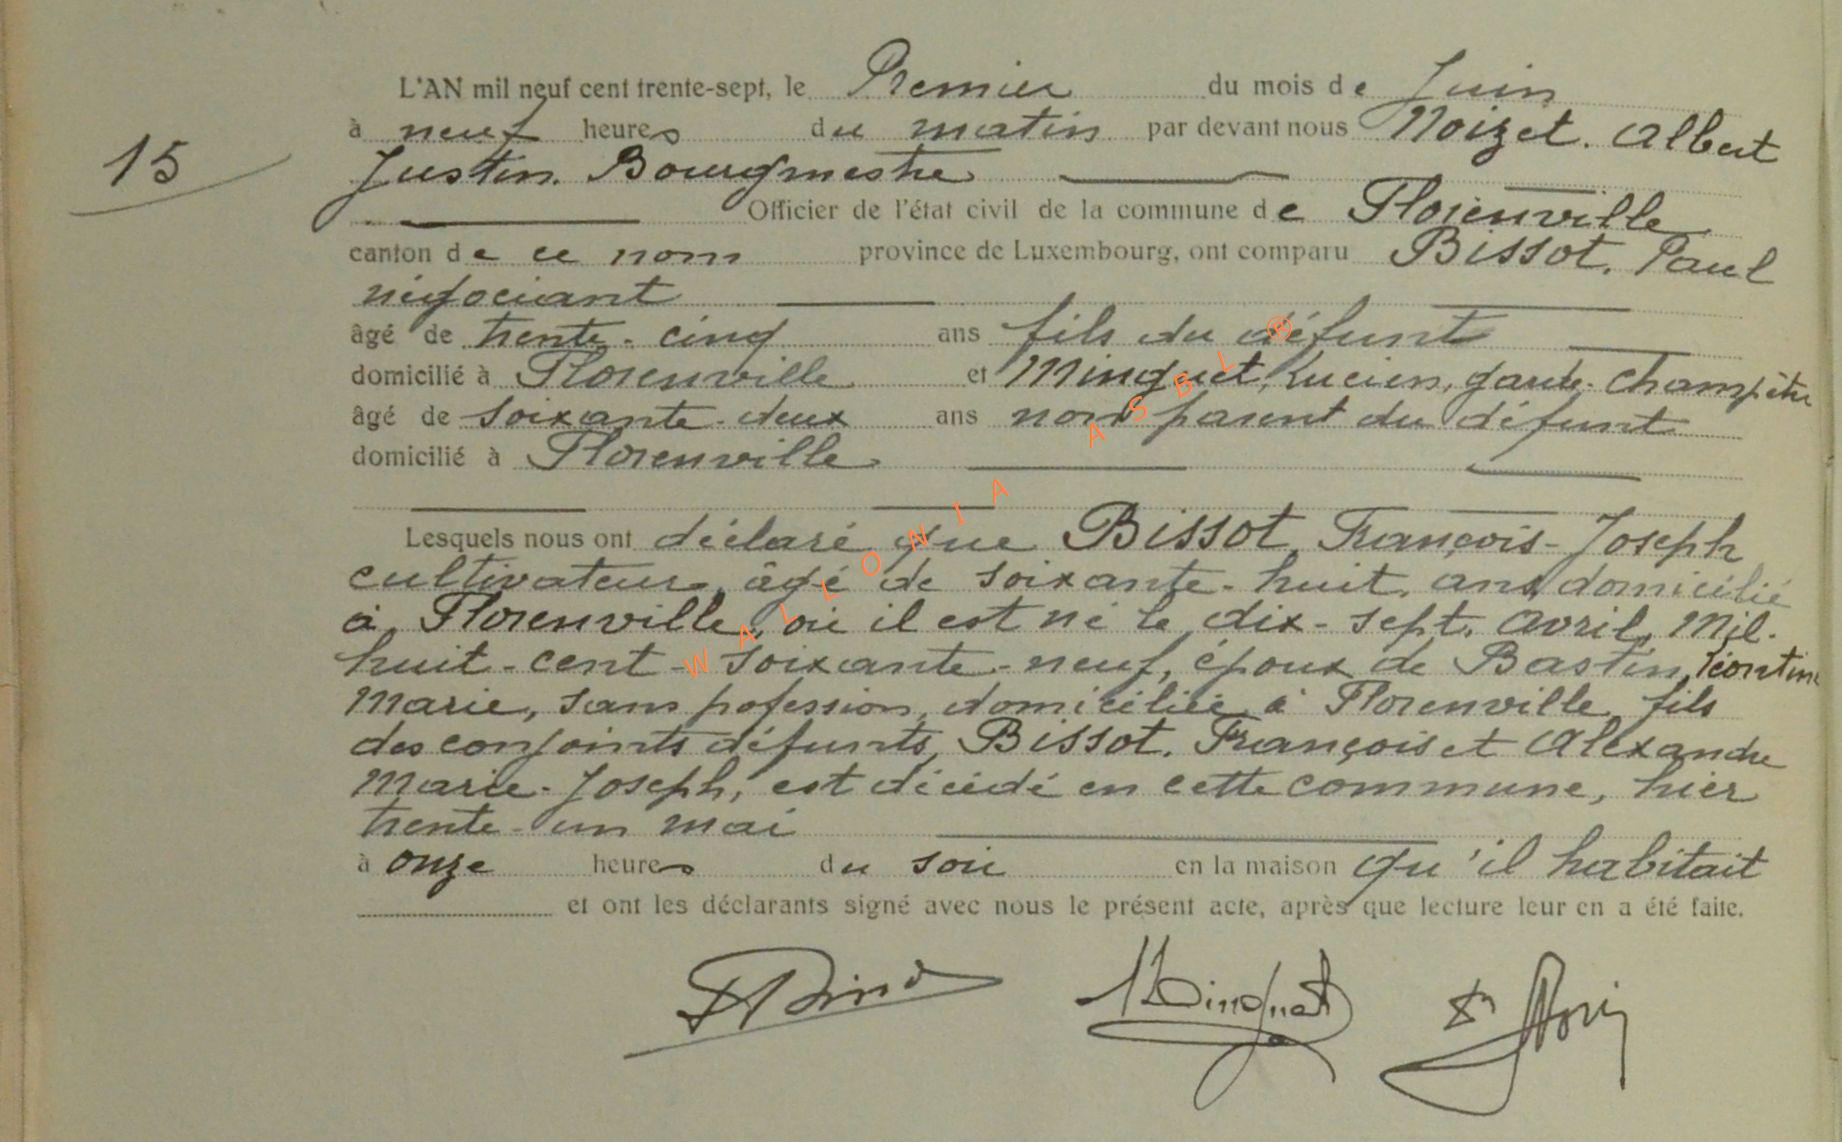 L'AN mil neuf cent trente-sept, le Premier du mois de Juin
à neuf heures du matin par devant nous Noizet. Albert
15
Justin. Bourgmestre
Officier de l'état civil de la commune de Florenville
canton de ce nom province de Luxembourg, ont comparu Bissot. Paul
négociant
âgé de trente-cinq ans fils du défunt
domicilié à Florenville et Minguet, Lucien, garde-champêtre
âgé de soixante-deux ans non parent du défunt
domicilié à Florenville
Lesquels nous ont déclaré que Bissot, François-Joseph
cultivateur, âgé de soixante-huit ans, domicilié
à Florenville, où il est né le dix-sept avril, mil-
huit-cent-soixante-neuf, époux de Bastin, Léontine
Marie, sans pofession, domiciliée à Florenville, fils
des conjoints défunts, Bissot. François et Alexandre
Marie-Joseph, est décédé en cette commune, hier
trente-un mai
à onze heures du soir en la maison qu'il habitait
et ont les déclarants signé avec nous le présent acte, après que lecture leur en a été faite.
Minguet
WALLONIA ASBL ®